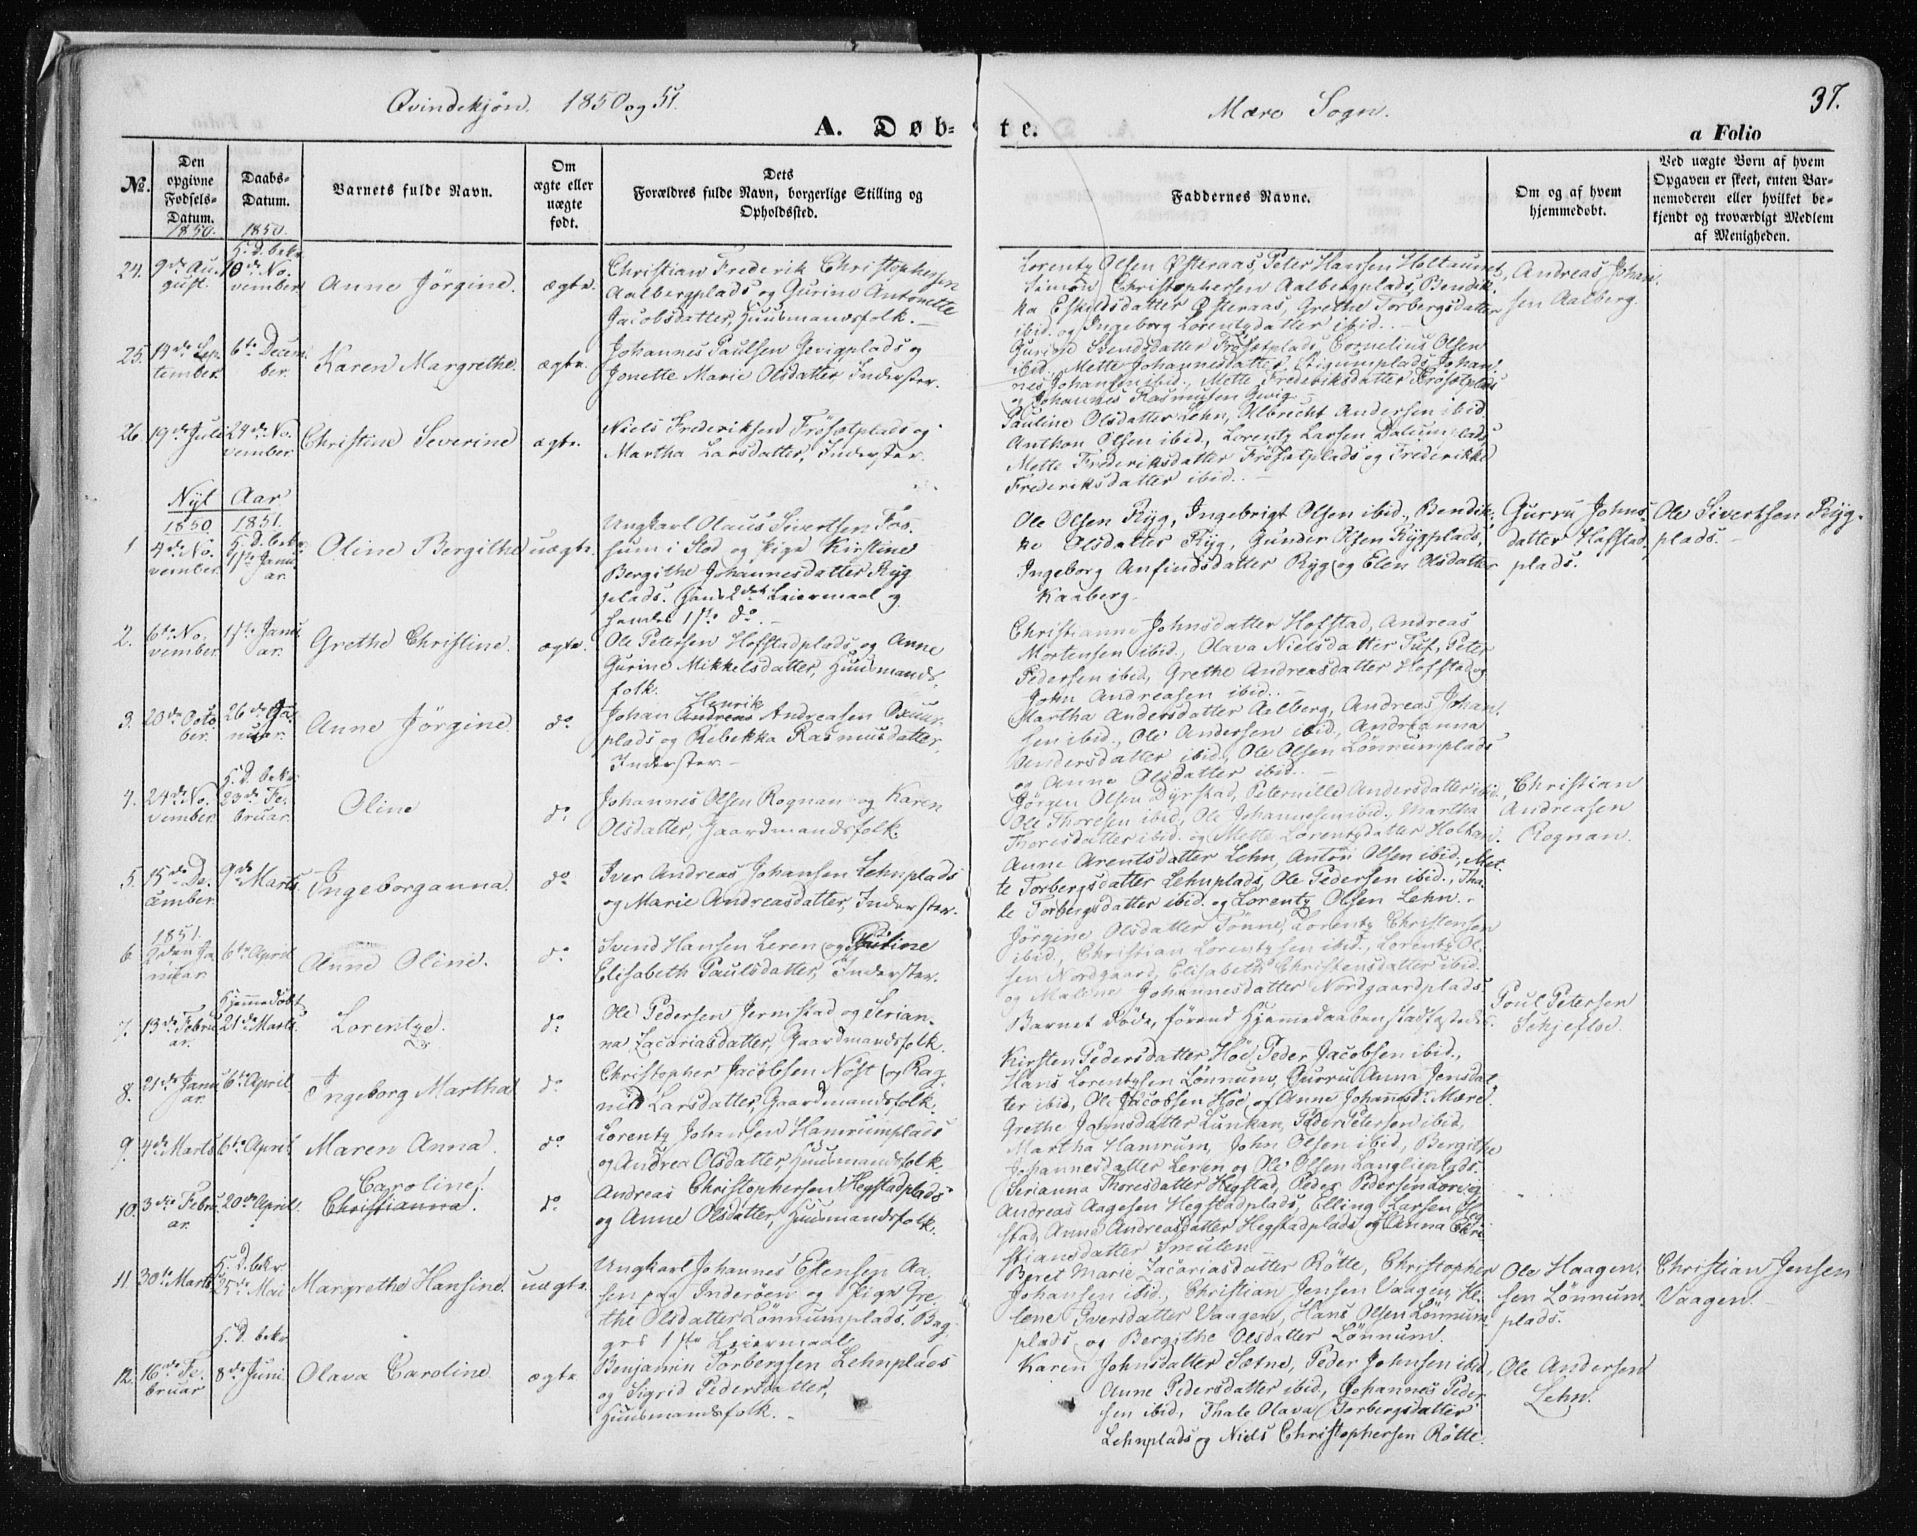 Qvindekjøn. 1850 og 51.
Mære Sogn.
37.
A. Døb-
te.
a Folio
No.
Den opgivne Fødsels-Datum.
1850.
Daabs-Datum.
1850.
Barnets fulde Navn.
Om ægte eller uægte født.
Dets
Forældres fulde Navn, borgerlige Stilling og
Opholdssted.
Faddernes Navne.
Om og af hvem
hjemmedøbt.
Ved uægte Børn af hvem
Opgaven er skeet, enten Bar-
nemoderen eller hvilket be-
kjendt og troværdigt Medlem
af Menigheden.
24.
9de Au-
gust.
H. D. bekr.
10de No-
vember
Anne Jörgine.
ægte.
Christian Frederik Christophersen
Aalbergplads og Gurine Antonette
Jacobsdatter, Huusmandsfolk.
Lorentz Olsen Østeraas, Peter Hansen Holtaunet,
Simon Christophersen Aalbergplads, Bendik-
ka Eskildsdatter Østeraas, Grethe Torbergsdatter
ibid. og Ingeborg Lorentzdatter ibid.
Andreas Johan-
sen Aalberg.
25.
tember.
6te Decem-
ber.
Karen Margrethe.
ægte.
Johannes Paulsen Jevigplads og
Jonette Marie Olsdatter, Inderster.
Svendsdatter Frösetplads, Cornelius Olsen
ibid., Mette Johannesdatter, Johan-
nes Johansen ibid., Mette Frederiksdatter Frösetplads
og Johannes Rasmussen
26.
19de Juli
24de No-
vember.
Christine Severine
ægte.
Niels Frederiksen Frösetplads og
Martha Larsdatter, Inderster.
Pauline Olsdatter Lehn, Albrecht Andersen ibid.
Anthon Olsen ibid., Lorentz Larsen Dalumplads
Mette Frederiksdatter Frösetplads og Frederikke
Frederiksdatter ibid.
Nyt Aar
1850 1851.
1
4de No-
vember.
H. D. bekr.
1ste Janu-
ar.
Oline Bergithe
uægte.
Ungkarl Olaus Sivertsen Fos-
sum i Stod og Pige Kirstine
Bergithe Johannesdatter Ryg-
plads. Hans 2det Leiermaal og
hendes 1ste do.
Ole Olsen Ryg, Ingebrigt Olsen ibid., Bendik-
ke Olsdatter Ryg, Gunder Olsen Rygplads,
Ingeborg Anfindsdatter Ryg og Elen Olsdatter
Kaaberg.
Gurru Johns-
datter Hofstad-
plads.
Ole Sivertsen Ryg-
plads.
2.
6te No-
vember.
1ste Janu-
ar.
Grethe Christine.
ægte.
Ole Petersen Hofstadplads og Anne
Gurine Mikkelsdatter, Huusmands-
folk.
Christianne Johnsdatter Hofstad, Andreas
Mortensen ibid., Olava Nielsdatter Tuf, Peter
Pedersen ibid, Grethe Andreasdatter Hofstad og
John Andreasen ibid.
3.
20de Octo-
ber.
26de Ja-
nuar.
Anne Jörgine
do
Henrik
Johan Andreas Andreasen
plads og Rebekka Rasmusdatter,
Inderster.
Martha Andersdatter Aalberg, Andreas Johan-
sen ibid., Ole Andersen ibid, Andrianna
Andersdatter ibid., Ole Olsen Lönnumplads
og Anne Olsdatter ibid.
4.
24de No-
vember.
H. D. bekr.
23de Fe-
bruar.
Oline
do
Johannes Olsen Rognan og Karen
Olsdatter, Gaardmandsfolk.
Jörgen Olsen Dyrstad, Peternille Andersdatter ibid.,
Ole Thoresen ibid, Ole Johannesen ibid., Martha
Thoresdatter ibid. og Mette Lorentzdatter
Christian
Andreasen
Rognan.
5.
15de De-
cember.
9de Marts
Ingeborganna.
do
Iver Andreas Johansen Lehnplads
og Marie Andreasdatter, Inderster.
Anne Arentsdatter Lehn, Anton Olsen ibid., Met-
te Torbergsdatter Lehnplads, Ole Pedersen ibid., Tha-
le Torbergsdatter ibid. og Lorentz Olsen Lehn.
6
1851.
nuar.
6te April
Anne Oline.
do
Svend Hansen Leren og
Elisabeth Paulsdatter, Inderster.
Jörgine Olsdatter Tönne, Lorentz Christensen
ibid., Christian Lorentzsen ibid., Lorentz Ol-
sen Nordgaard, Elisabeth Christensdatter ibid.
og Malene Johannesdatter Nordgaardplads
7.
13de Febru-
ar.
Hjemmedöbt
21de Marts.
Lorentze.
do
Ole Pedersen Jermstad og Serian-
na Zacariasdatter, Gaardmandsfolk.
Barnet döde, förend Hjemmedaaben stadfæstedes.
Poul Petersen
Schjefloe.
8.
21de Janu-
ar.
6te April
Ingeborg Martha
do
Christopher Jacobsen Nöst og Rag-
nild Larsdatter, Gaardmandsfolk.
Kirsten Pedersdatter Höe, Peder Jacobsen ibid.,
Hans Lorentzsen Lönnum, Gurru Anna Jensdat-
ter ibid, Ole Jacobsen Höe og Anne Johannsd. Mære.
9.
4de Marts
6te April
Maren Anna.
do
Lorentz Johansen Hamrumplads
og Andrea Olsdatter, Huusmandsfolk.
Grethe Johnsdatter Lunkan, Peder Petersen ibid,
Martha Hamrum, John Olsen ibid, Bergithe
Johannesdatter Leren og Ole Olsen Langlieplads.
10.
3die Febru-
ar.
20de April.
Caroline.
Christianna.
do
Andreas Christophersen Hegstadplads
og Anne Olsdatter, Huusmandsfolk.
Serianna Thoresdatter Hegstad, Peder Pedersen
Andreas Aagesen Hegstadplads, Elling Larsen Heg-
stad, Anne Andreasdatter Hegstadplads og Anna Chri-
stiansdatter Smulen.
11.
30te Marts
H. D. bekr.
25de Mai
Margrethe Hansine.
uægte.
Ungkarl Johannes Estensen Aa-
sen paa Inderöen og Pige Gre-
the Olsdatter Lönnumplads. Beg-
ges 1ste Leiermaal.
Beret Marie Zacariasdatter Rötte, Christopher
Johansen ibid., Christian Jensen Vaagen, He-
lene Iversdatter Vaagen, Hans Olsen Lönnum-
plads og Bergithe Olsdatter Lönnum.
Ole Haagen-
sen Lönnum-
plads.
Christian Jensen
Vaagen.
12.
16de Fe-
bruar
H. D. bekr.
8de Juni
Olava Caroline
ægte
Benjamin Torbergsen Lehnplads
og Sigrid Pedersdatter,
Huusmandsfolk.
Karen Johnsdatter Sætne, Peder Johnsen ibid.,
Anne Pedersdatter ibid., Johannes Peder-
sen ibid, Thale Olava Torbergsdatter
Lehnplads og Niels Christophersen Rötte.
Ole Andersen
Lehn.